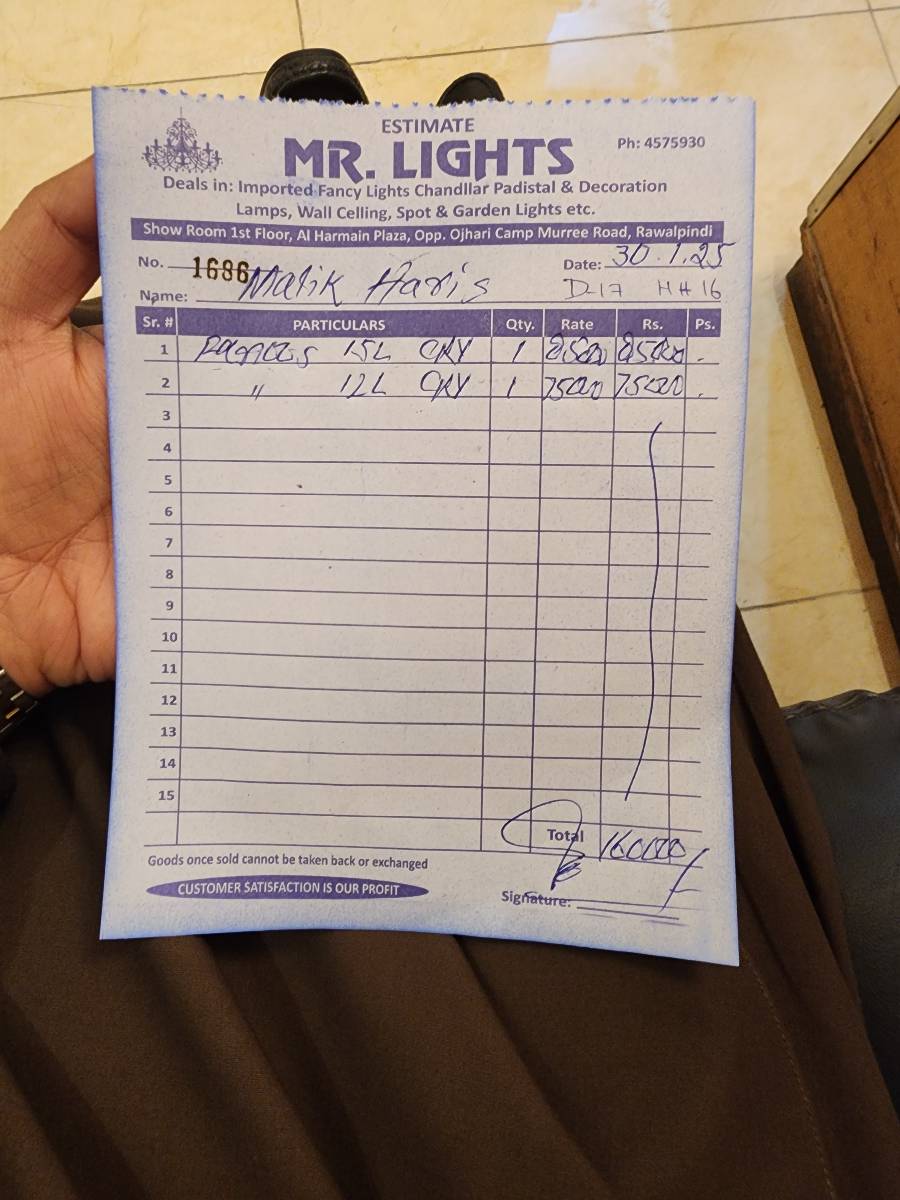 ESTIMATE
MR. LIGHTS
Ph: 4575930
Deals in: Imported Fancy Lights Chandllar Padistal & Decoration
Lamps, Wall Celling, Spot & Garden Lights etc.
Show Room 1st Floor, Al Harmain Plaza, Opp. Ojhari Camp Murree Road, Rawalpindi
No. 1686 Date: 30.1.25
Name: Malik Haris D-17 H#16
Sr. # PARTICULARS Qty. Rate Rs. Ps.
1 15L CRY 1 85000 85000 .
2 " 12L CRY 1 75000 75000 .
3
4
5
6
7
8
9
10
11
12
13
14
15
Total 160000/
Goods once sold cannot be taken back or exchanged
CUSTOMER SATISFACTION IS OUR PROFIT
Signature: